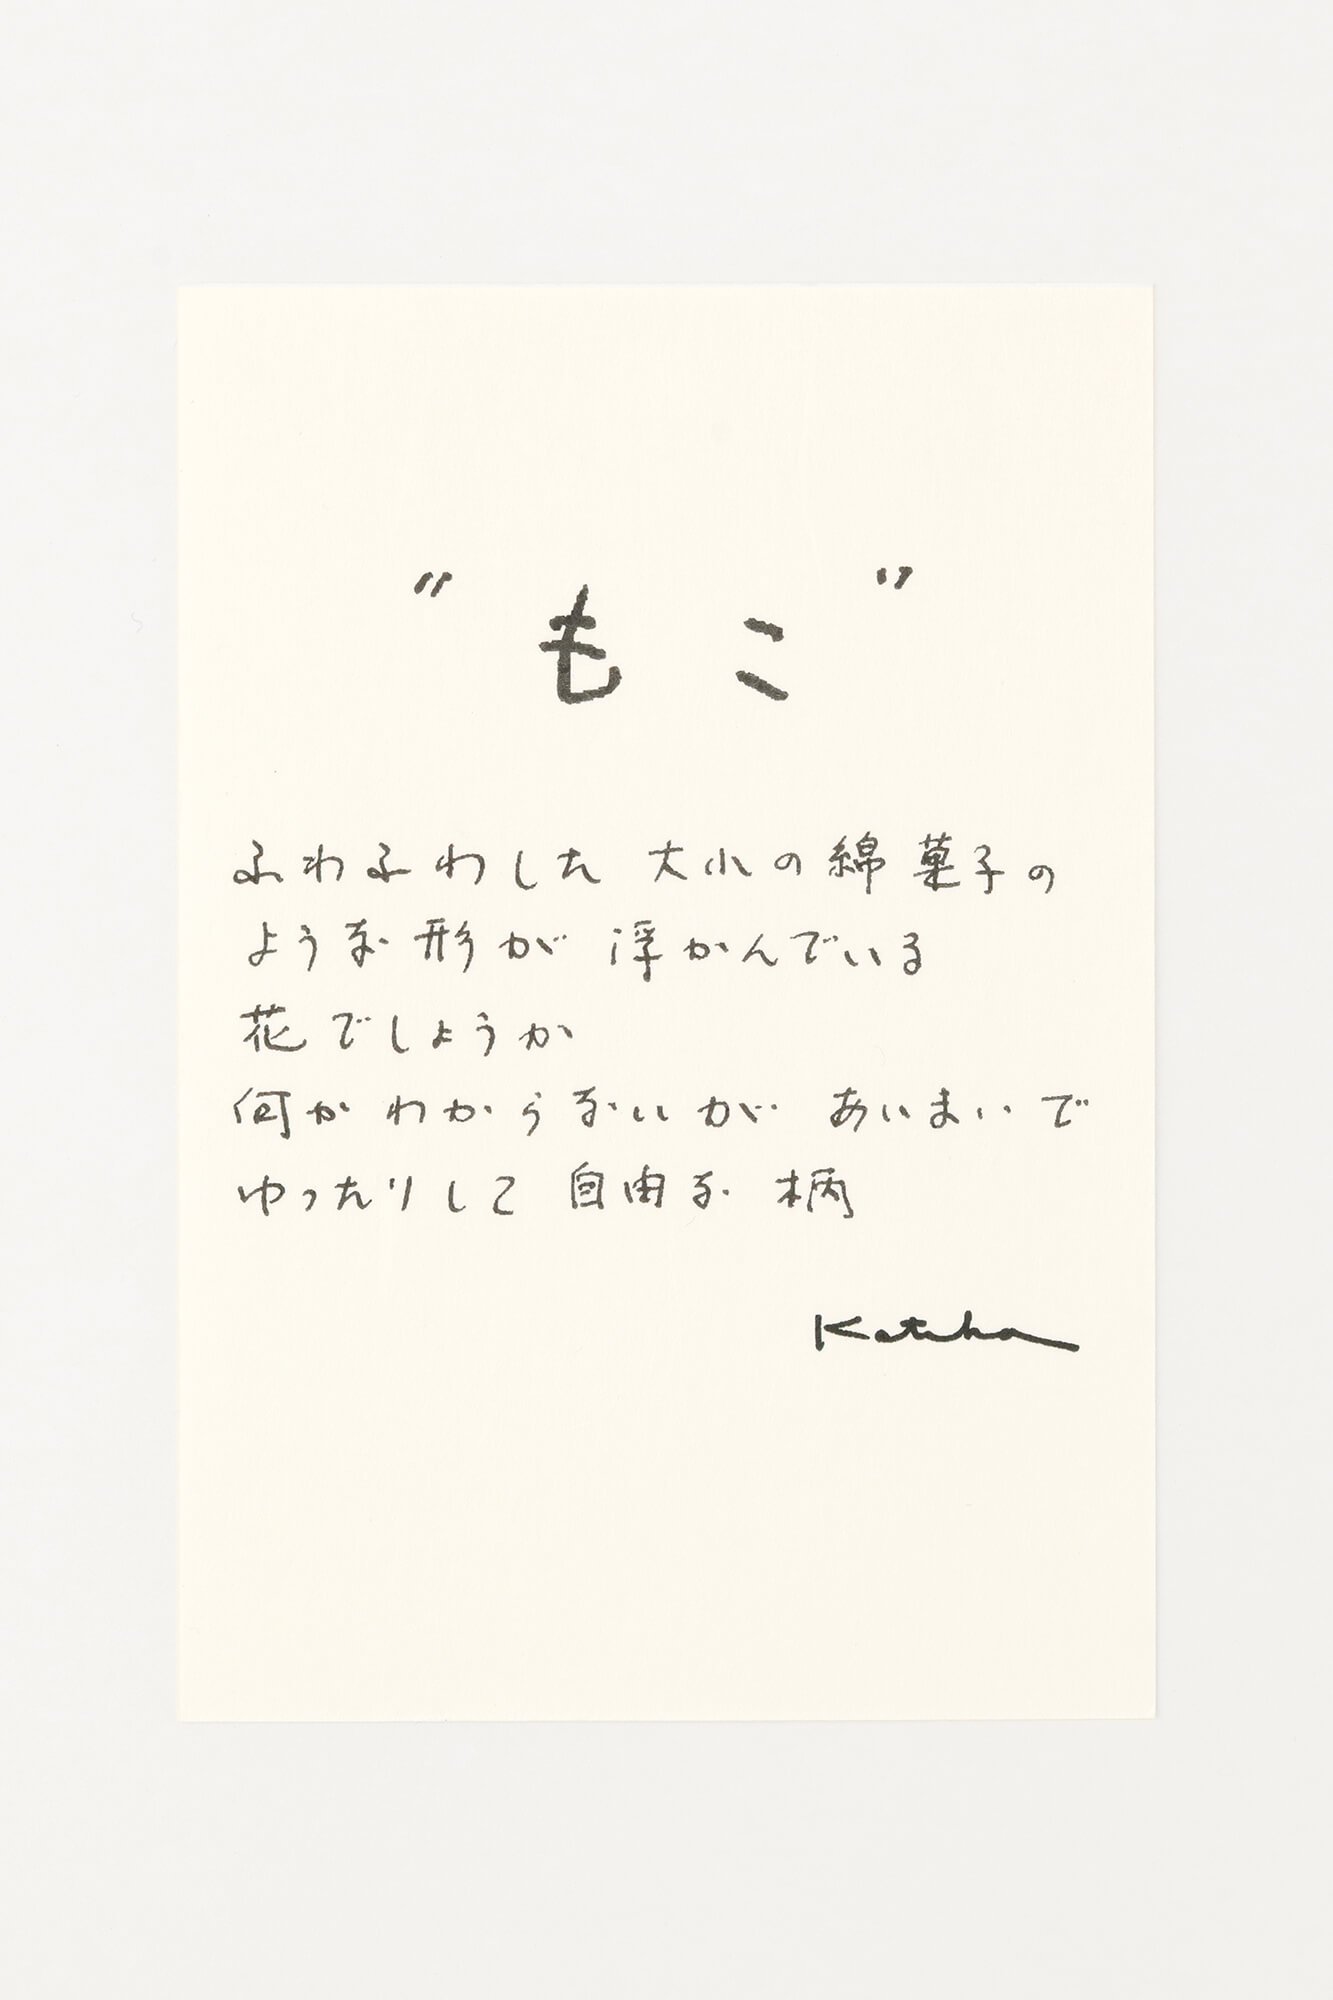 "もこ"
ふわふわした 大小の綿菓子の
ような形が 浮かんでいる
花でしょうか
何かわからないが あいまいで
ゆったりして 自由な 柄